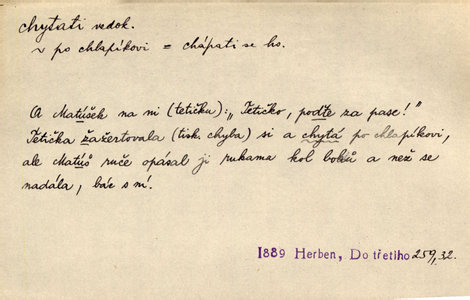 chytati vedok.
~ po chlapíkovi = chápati se ho.
A Matúšek na ni (tetičku): „Tetičko, poďte za pase!"
Tetička žažertovala (tisk. chyba) si a chytá po chlapíkovi,
ale Matúš ruče opásal ji rukama kol boků a než se
nadála, bác s ní.
1889 Herben, Do třetího 259, 32.